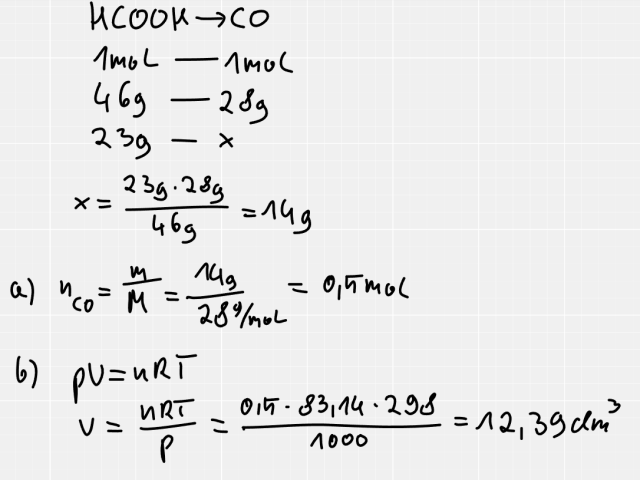 HCOOH → CO
1mol — 1mol
46g — 28g
23g — x
x = 23g · 28g / 46g = 14g
a) n_CO = m / M = 14g / 28 g/mol = 0,5 mol
b) pV = nRT
V = nRT / p = 0,5 · 83,14 · 298 / 1000 = 12,39 dm³